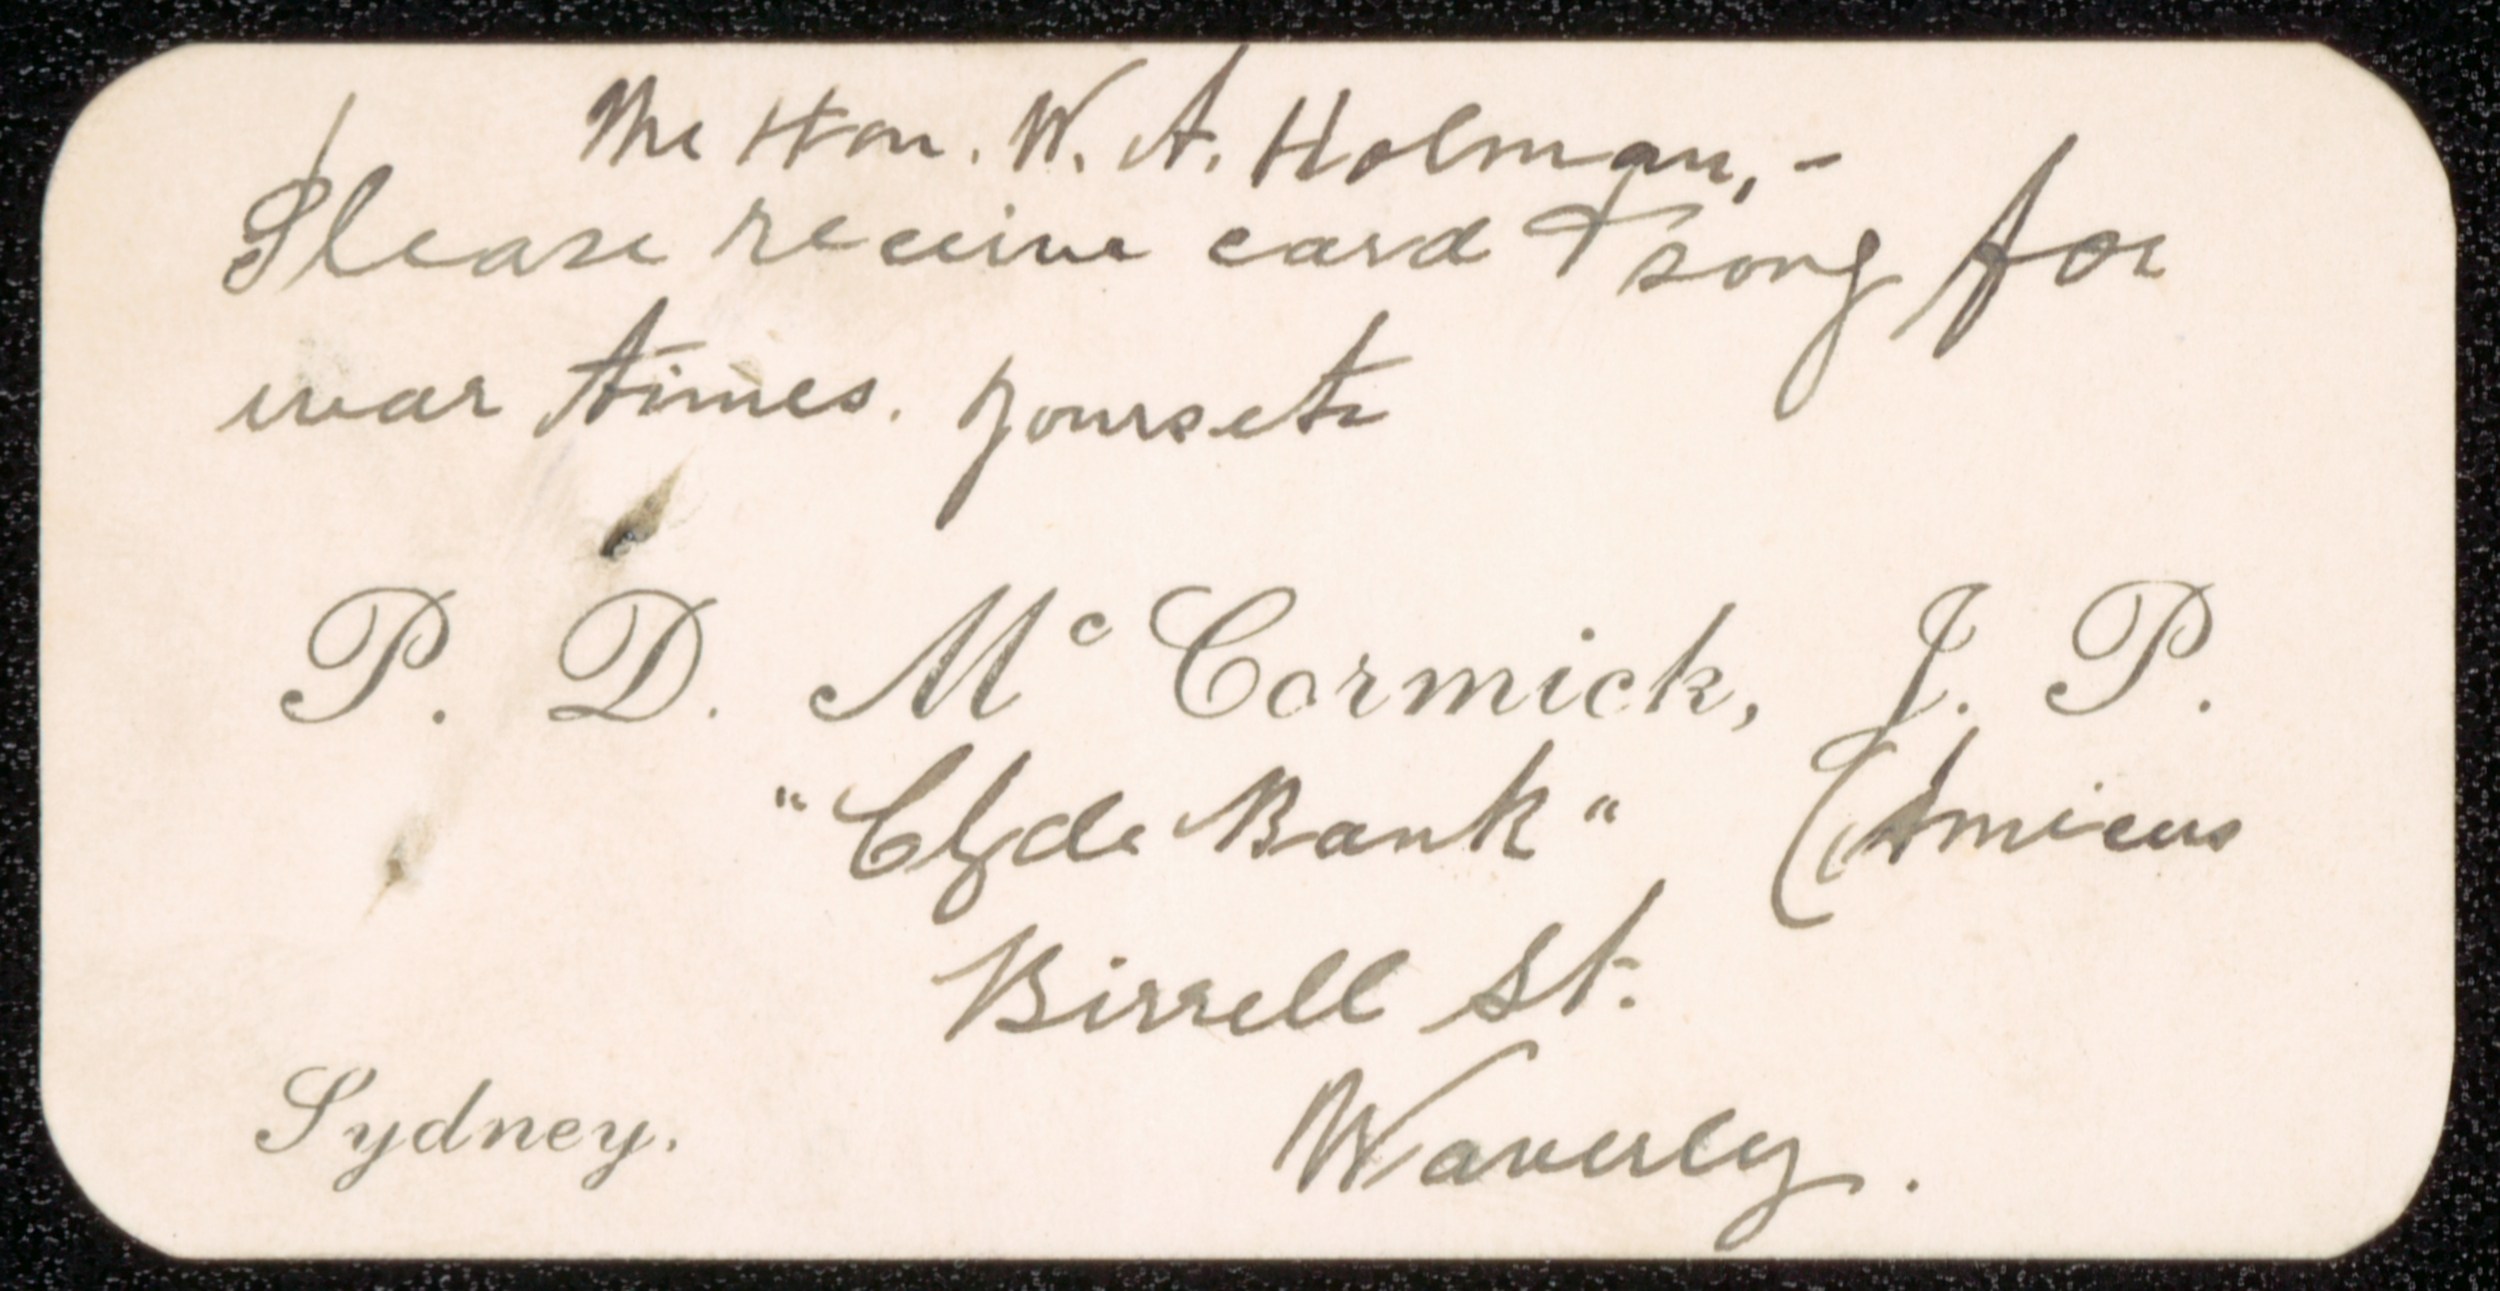 The Hon. W. A. Holman,-
Please receive card & song for
war times. yours etc
P. D. Mc Cormick, J. P.
"Clyde Bank" (Amicus
Birrell St.
Sydney.
Waverley.